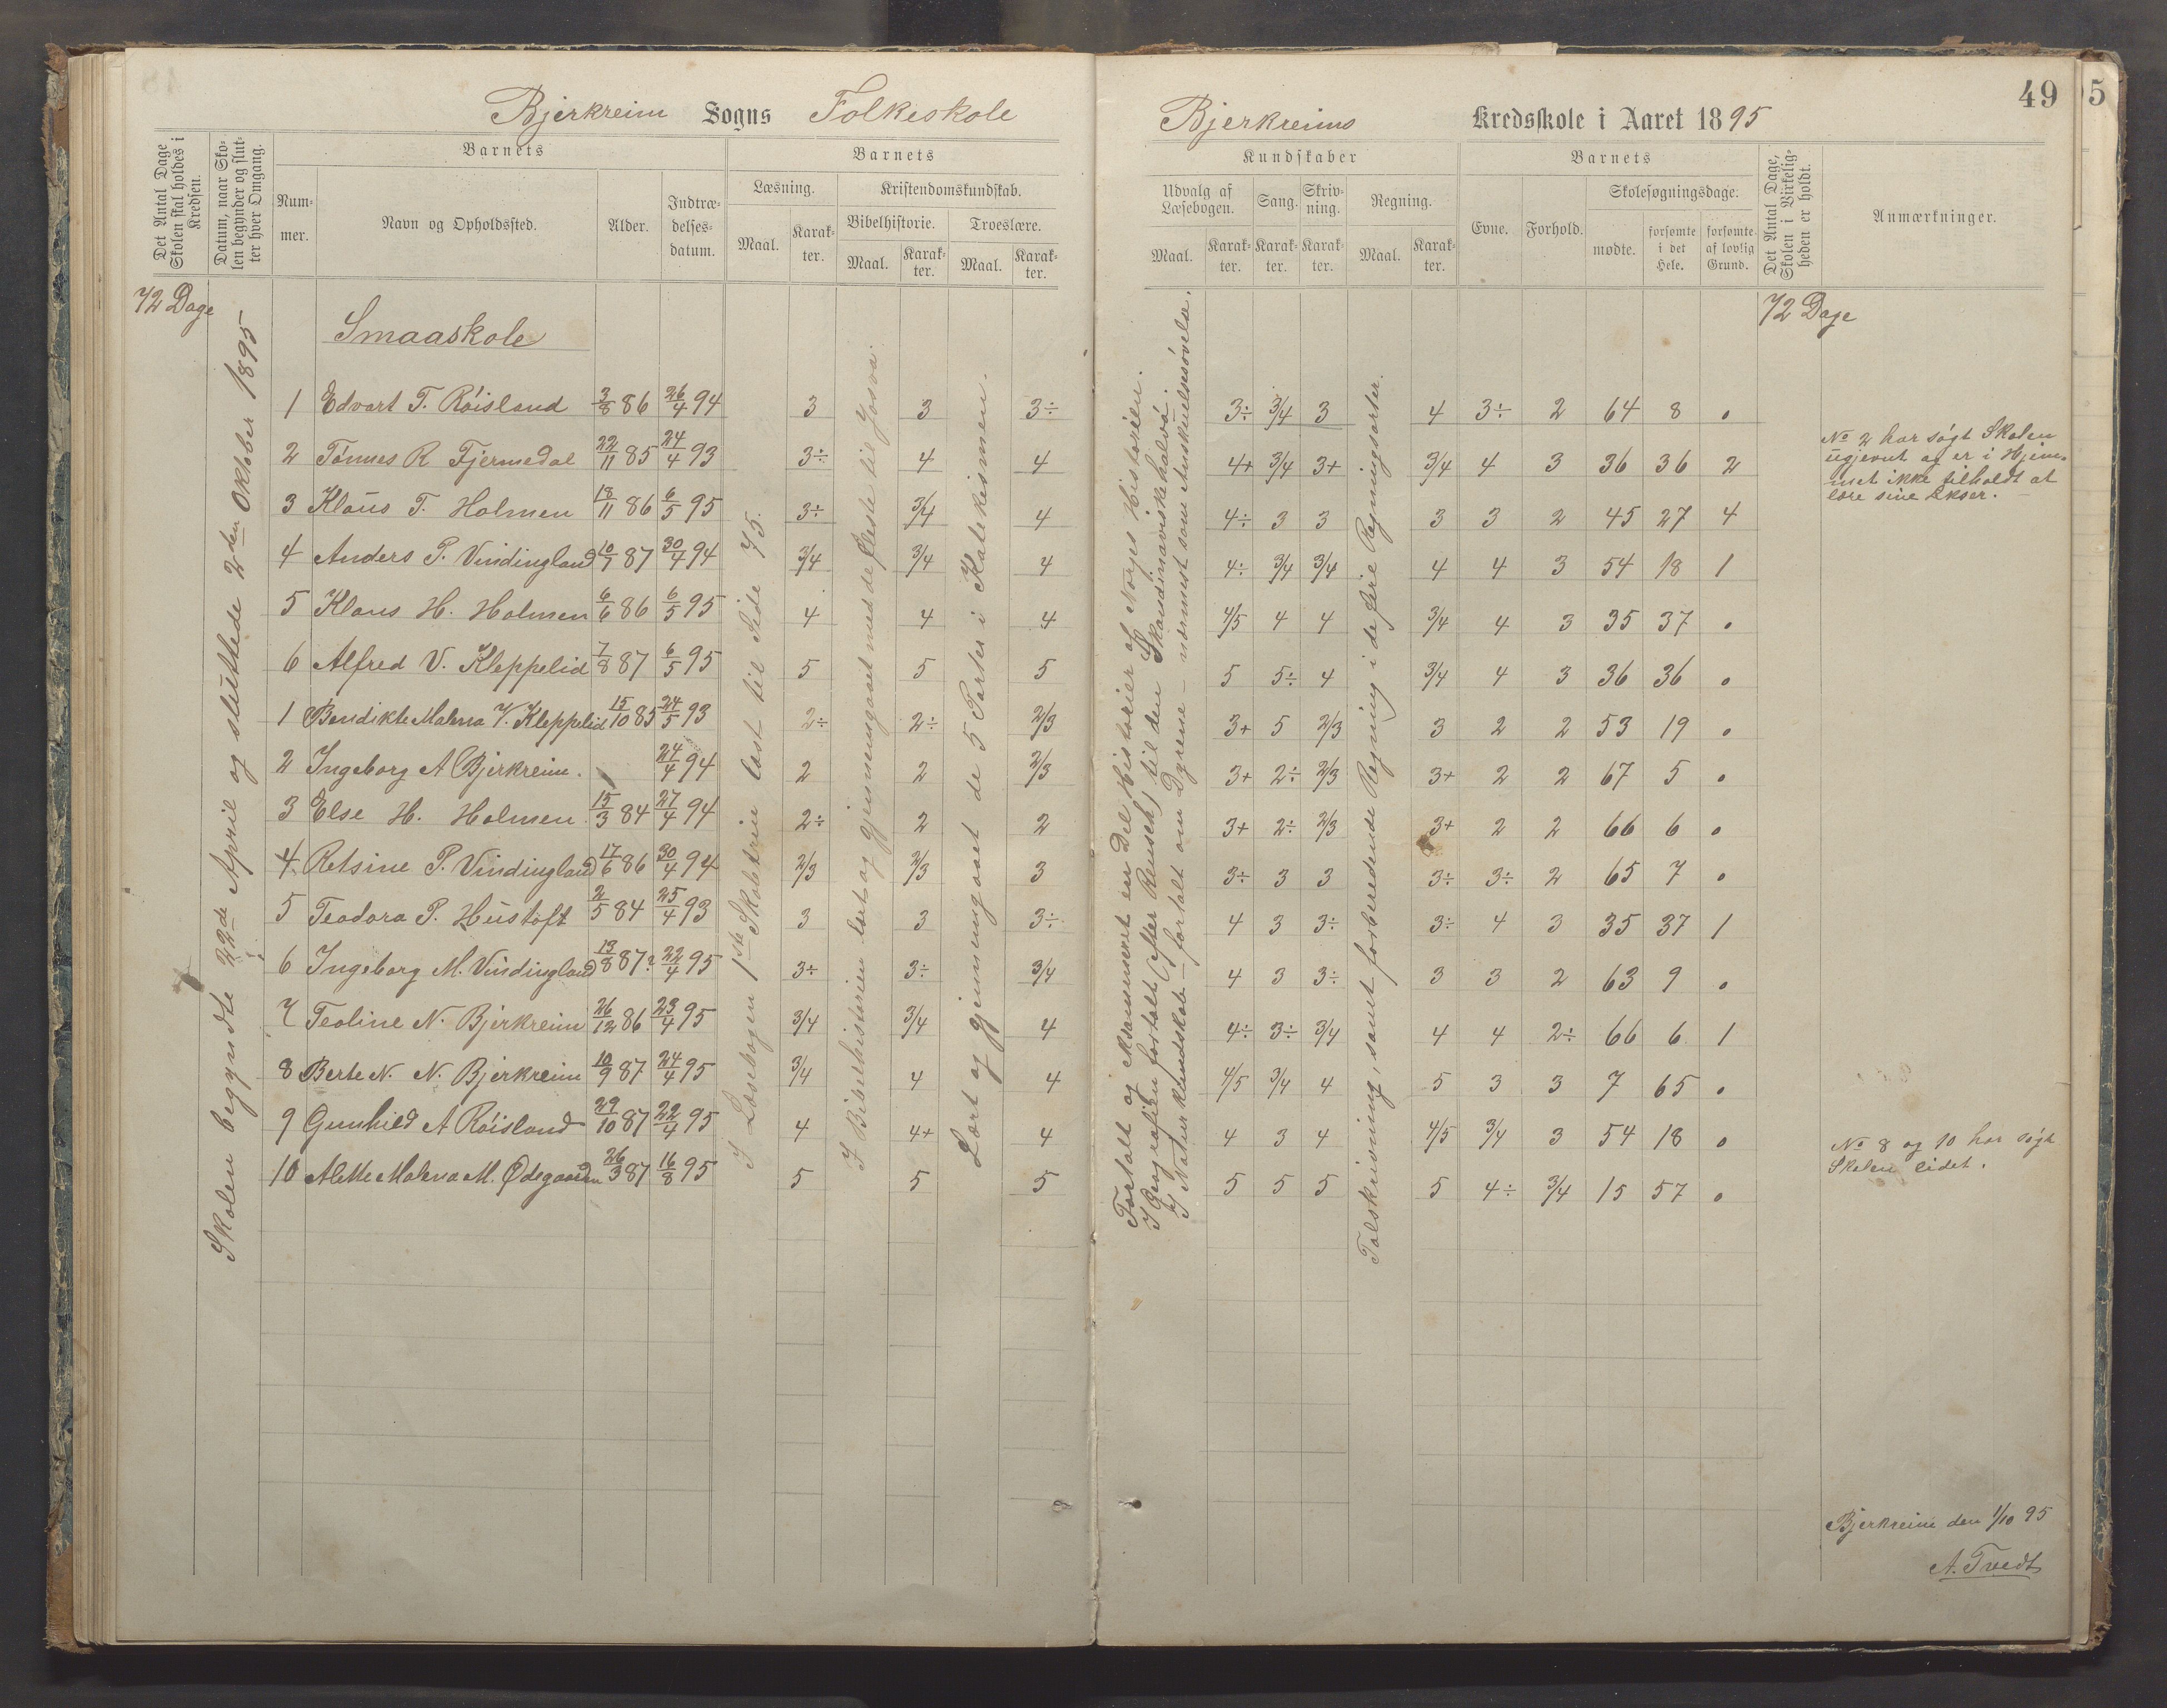 Bjerkreim Sogns Folkeskole
Det Antal Dage Skolen skal holdes i Kredsen.
Datum, naar Skolen begynder og slutter hver Omgang.
Barnets
Nummer.
Navn og Opholdssted.
Alder.
Indtrædelsesdatum.
Barnets
Læsning.
Maal.
Karakter.
Kristendomskundskab.
Bibelhistorie.
Maal.
Karakter.
Troeslære.
Maal.
Karakter.
72 Dage
Skolen begyndte 22de April og sluttede 2den Oktober 1895
Smaaskole
1 Edvart T. Röisland 3/8 86 26/4 94 3 3 3÷
2 Tönnes R Fjermedal 22/11 85 24/4 93 3÷ 4 4
3 Klaus T. Holmen 18/11 86 6/5 95 3÷ 3/4 4
4 Anders P. Vindingland 10/7 87 30/4 94 3/4 3/4 4
5 Klaus H. Holmen 6/6 86 6/5 95 4 4 4
6 Alfred V. Kleppelid 7/8 87 6/5 95 5 5 5
1 Bendikte Malena V. Kleppelid 15/10 85 24/5 93 2÷ 2÷ 2/3
2 Ingeborg A Bjerkreim. 24/4 94 2 2 2/3
3 Else H. Holmen 15/3 84 27/4 94 2÷ 2 2
4 Retsine P. Vindingland 17/6 86 30/4 94 2/3 2/3 3
5 Teodora P. Hustoft 2/5 84 25/4 93 3 3 3÷
6 Ingeborg M. Vindingland 13/8 87? 22/4 95 3÷ 3÷ 3/4
7 Teoline N. Bjerkreim 26/12 86 23/4 95 3/4 3/4 4
8 Berte N. N. Bjerkreim 10/9 87 24/4 95 3/4 4 4
9 Gunhild A Röisland 29/10 87 22/4 95 4 4+ 4
10 Alette Malena M. Ødegaarden 26/3 87 16/8 95 5 5 5
I Læsebogen 1ste Skoletrin læst til Side 75.
I Bibelhistorien lært og gjennemgaaet med de fleste til Josva.
Lært og gjennemgaaet de 5 Parter i Katekismen.
49
Bjerkreims Kredsskole i Aaret 1895
Kundskaber
Udvalg af Læsebogen.
Maal.
Karakter.
Sang.
Karakter.
Skrivning.
Karakter.
Regning.
Maal.
Karakter.
Barnets
Evne.
Forhold.
Skolesøgningsdage.
mødte.
forsømte i det Hele.
forsømte af lovlig Grund.
Det Antal Dage, Skolen i Virkeligheden er holdt.
Anmærkninger.
72 Dage
Fortalt og eksamineret en Del Historier af Norges Historien.
I Geografien fortalt (efter Reusch) til den Skandinaviske halvö.
I Naturkundskab - fortalt om Dyrene - nærmest som Anskuelsesövelse.
Talskrivning, samt forberedende Regning i de fire Regningsarter.
3÷ 3/4 3 4 3÷ 2 64 8 0
4+ 3/4 3+ 3/4 4 3 36 36 2
4÷ 3 3 3 3 2 45 27 4
4÷ 3/4 3/4 4 4 3 54 18 1
4/5 4 4 3/4 4 3 35 37 0
5 5÷ 4 3/4 4 3 36 36 0
3+ 5 2/3 3 2 2 53 19 0
3+ 2÷ 2/3 3+ 2 2 67 5 0
3+ 2÷ 2/3 3+ 2 2 66 6 0
3÷ 3 3 3÷ 3÷ 2 65 7 0
4 3 3÷ 3÷ 4 3 35 37 1
4 3 3÷ 3 3 2 63 9 0
4÷ 3÷ 3/4 4 4 2÷ 66 6 1
4/5 3/4 4 5 3 3 7 65 0
4 3 4 4/5 3/4 3 54 18 0
5 5 5 5 4÷ 3/4 15 57 0
No 2 har sögt Skolen
ugjevnt og er i Hjem-
met ikke tilholdt at
lære sine Lekser.
No 8 og 10 har sögt
Skolen lidet.
Bjerkreim den 1/10 95
A. Tvedt